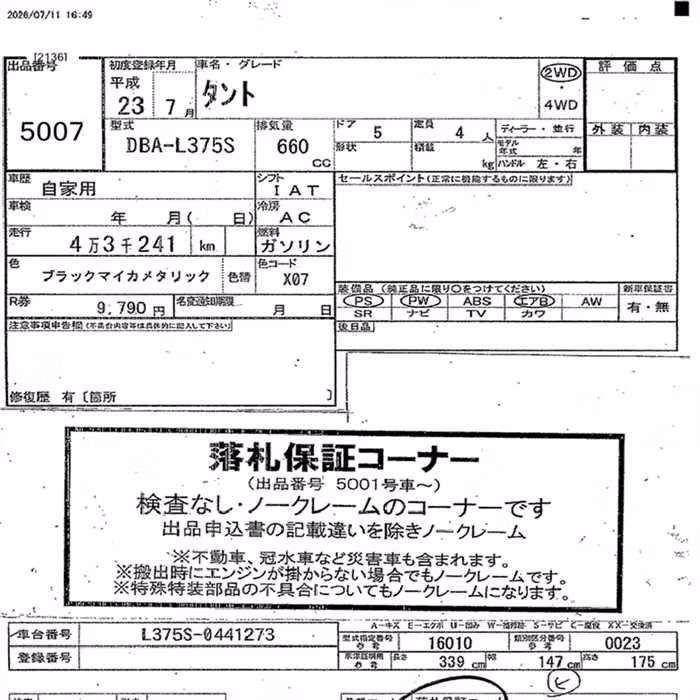 2026/07/11 16:49
[2136]
出品番号
5007
初度登録年月
平成
23 7 月
車名・グレード
タント
2WD
・
4WD
評価点
外装 内装
型式
DBA-L375S
排気量
660
CC
ドア
5
定員
4 人
形状
積載
kg
ディーラー・並行
モデル年式 年
ハンドル 左・右
車歴
自家用
シフト
IAT
セールスポイント(正常に機能するものに限ります)
車検
年 月( 日)
冷房
AC
走行
4万3千241 km
燃料
ガソリン
色
ブラックマイカメタリック
色替
色コード
X07
装備品(純正品に限り○をつけてください)
新車保証書
PS PW ABS エアB AW
有・無
SR ナビ TV カワ
R券
9,790 円
名変通知期限
月 日
後日品
注意事項申告欄(不具合内容等は具体的に記入して下さい)
修復歴 有〔箇所 〕
落札保証コーナー
(出品番号 5001号車~)
検査なし・ノークレームのコーナーです
出品申込書の記載違いを除きノークレーム
※不動車、冠水車など災害車も含まれます。
※搬出時にエンジンが掛からない場合でもノークレームです。
※特殊特装部品の不具合についてもノークレームになります。
車台番号
L375S-0441273
登録番号
型式指定番号
参考
16010
類別区分番号
参考
0023
長さ 339 cm 幅 147 cm 高さ 175 cm